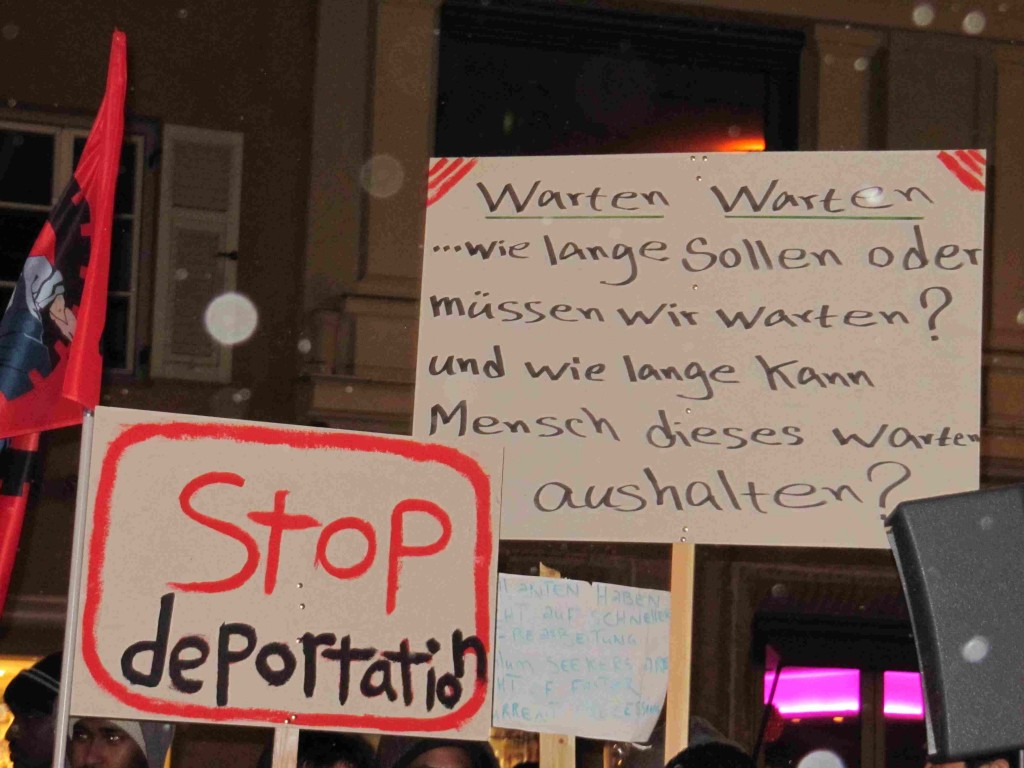 Warten Warten
...wie lange Sollen oder
müssen wir warten?
und wie lange Kann
Mensch dieses warten
aushalten?
Stop
deportation
HABEN
AUF SCHNELLER
SEEKERS ARE